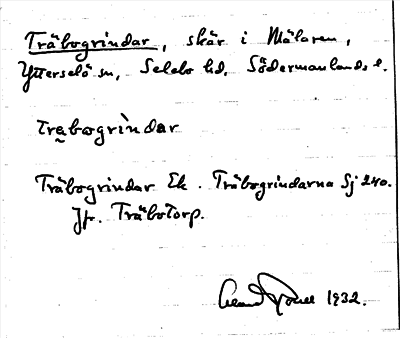 Träbogrindar, skär i Mälaren,
Ytterselö sn, Selebo hd, Södermanlands l.
Träbogrìndar
Träbogrindar Ek. Träbogrindarna Sj 240.
Jfr. Träbotorp.
1932.